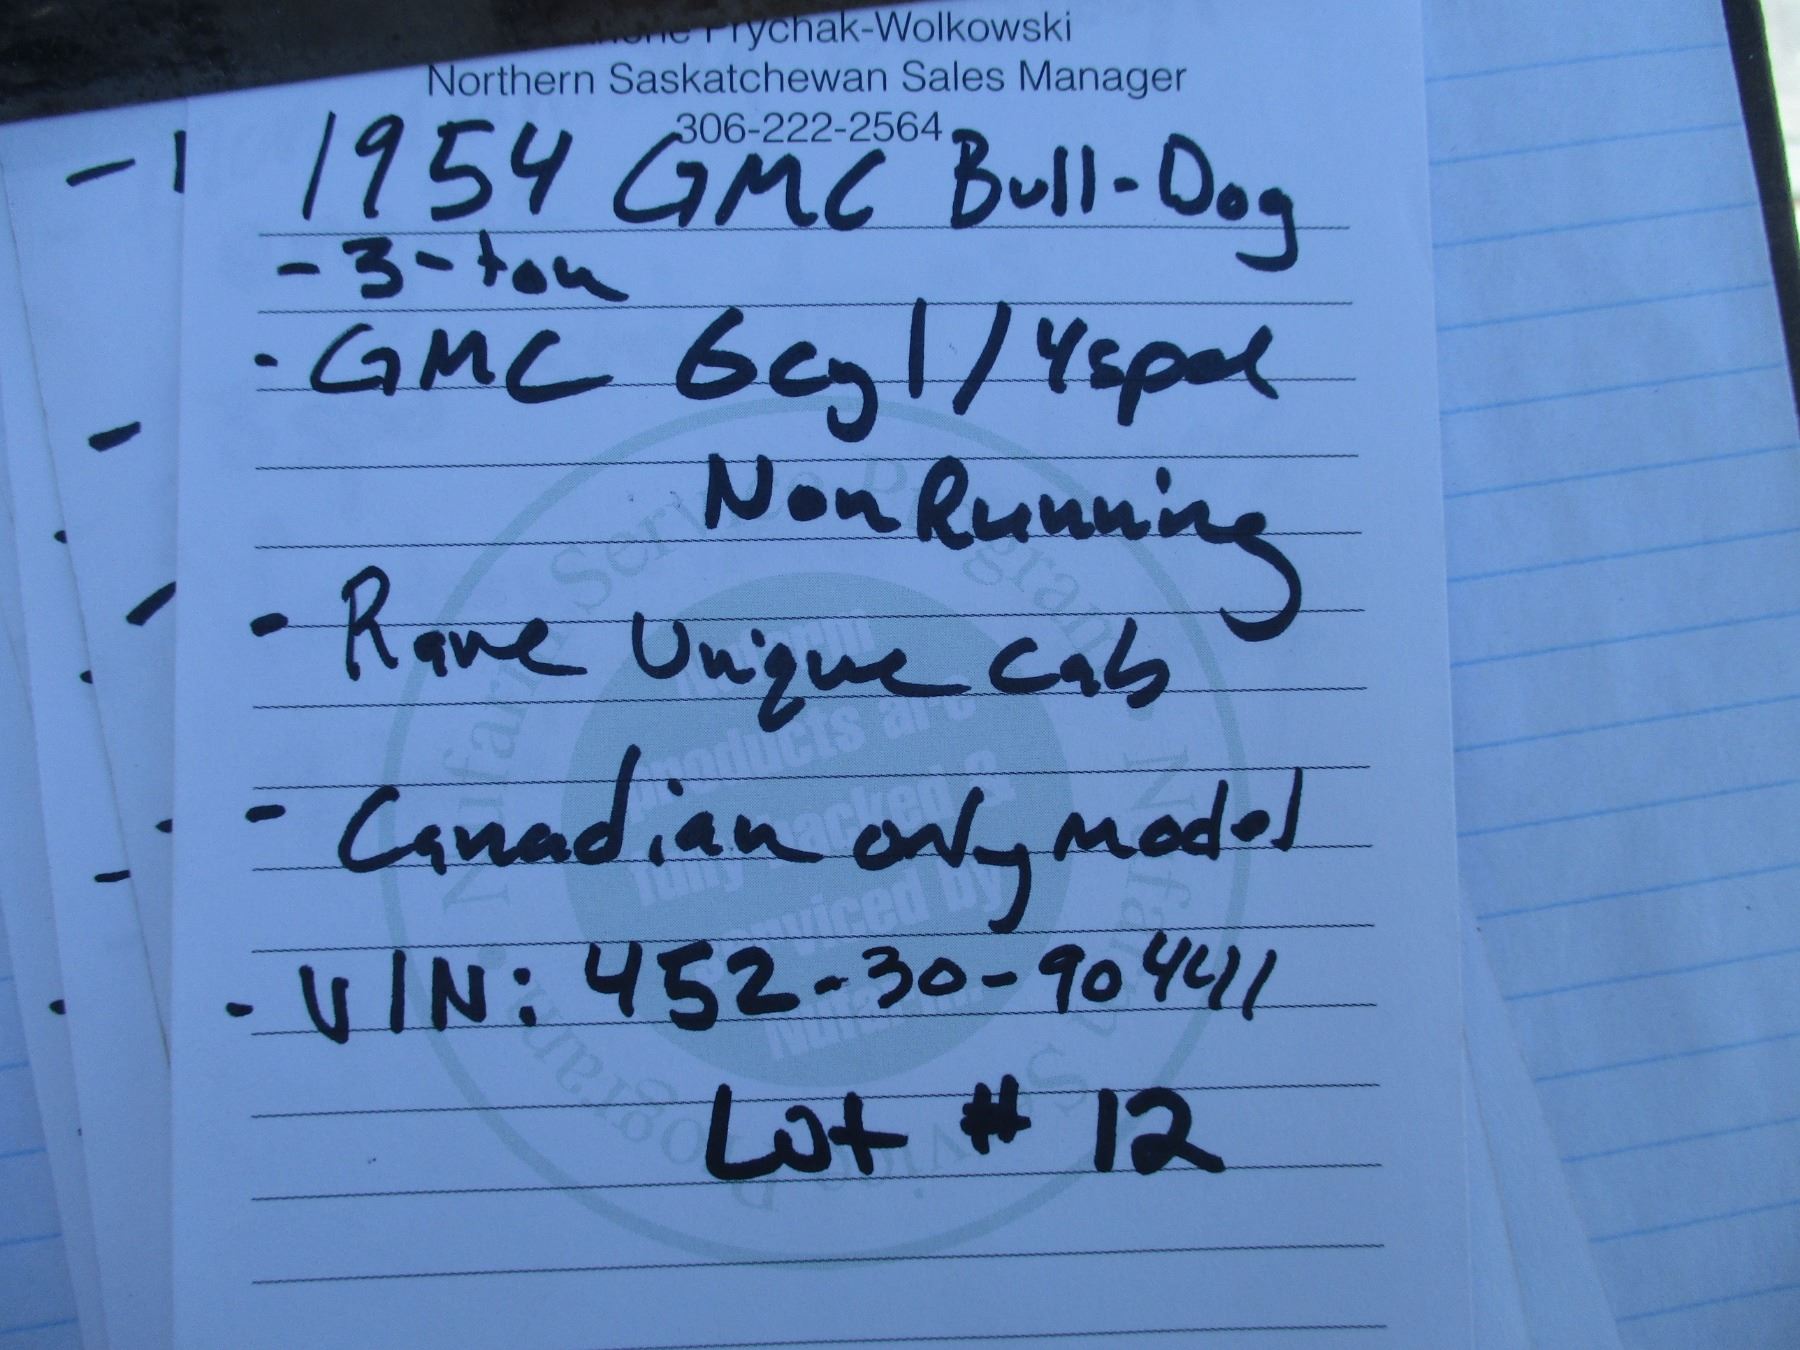 Prychak-Wolkowski
Northern Saskatchewan Sales Manager
306-222-2564
1954 GMC Bull-Dog
- 3-ton
- GMC 6cyl / 4spd
Non Running
- Rare Unique Cab
- Canadian only model
- VIN: 452-30-90441
Lot # 12
Nufarm Service Program • Nufarm Service Program •
Nufarm
products are
fully backed &
serviced by
Nufarm.